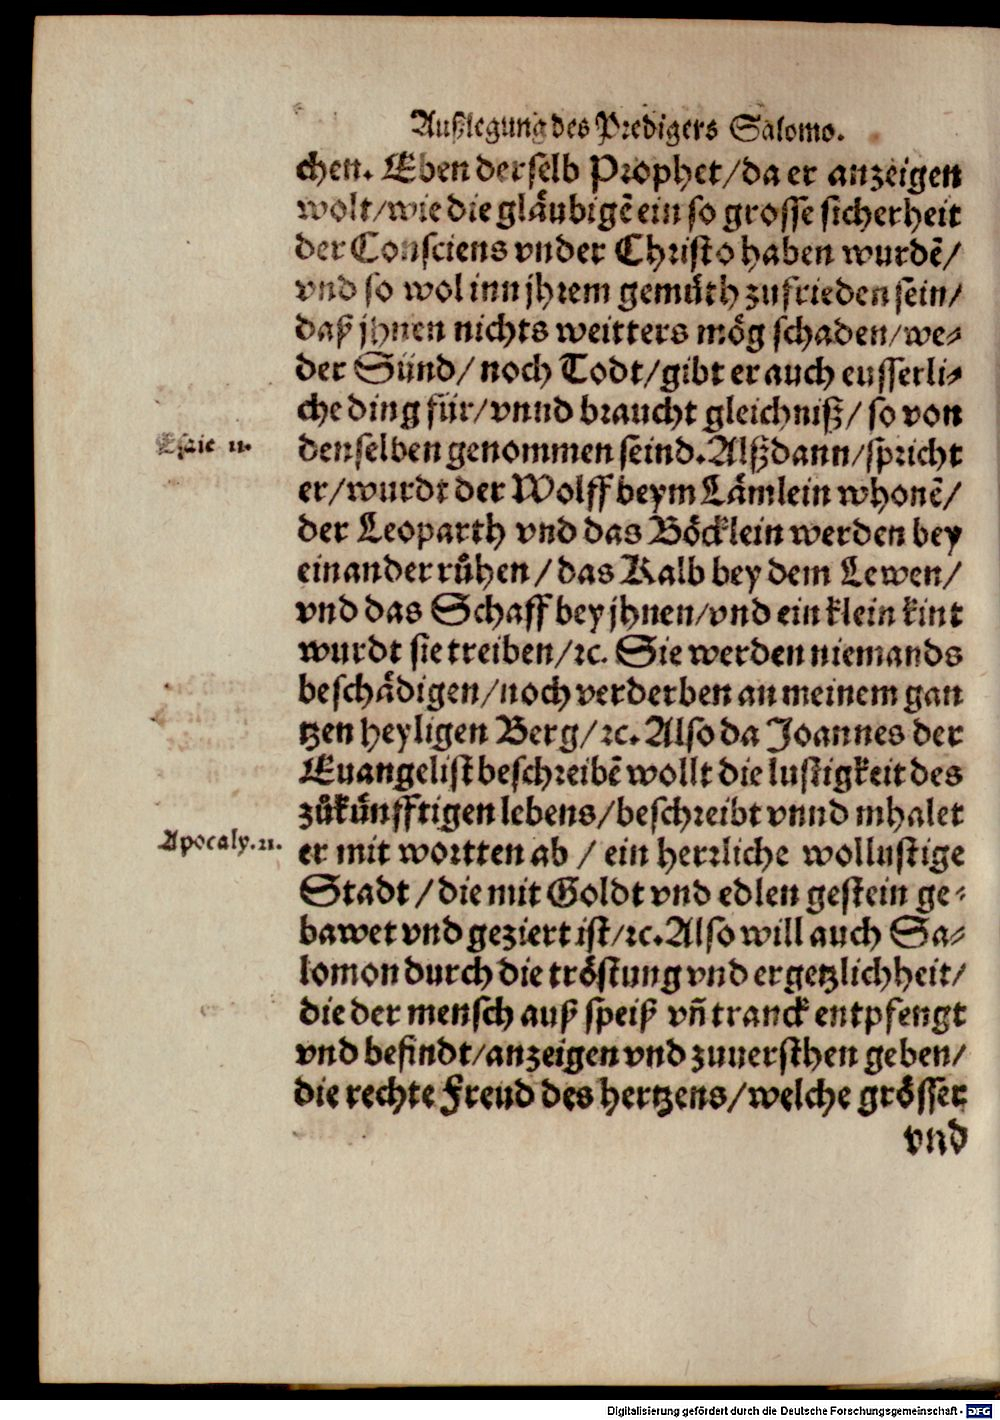 Außlegung des Predigers Salomo.
chen. Eben derselb Prophet/da er anzeigen
wolt/wie die gläubigẽ ein so grosse sicherheit
der Consciens vnder Christo haben wurdẽ/
vnd so wol inn jhrem gemüth zufrieden sein/
daß jhnen nichts weitters mög schaden/we⸗
der Sünd/ noch Todt/gibt er auch eusserli⸗
che ding für/vnnd braucht gleichniß/ so von
Esaie 11.
denselben genommen seind. Alßdann/spricht
er/wurdt der Wolff beym Lämlein whonẽ/
der Leoparth vnd das Böcklein werden bey
einander rühen/das Kalb bey dem Lewen/
vnd das Schaff bey jhnen/vnd ein klein kint
wurdt sie treiben/ꝛc. Sie werden niemands
beschädigen/noch verderben an meinem gan
tzen heyligen Berg/ꝛc. Also da Joannes der
Euangelist beschreibẽ wollt die lustigkeit des
zůkünfftigen lebens/beschreibt vnnd mhalet
Apocaly. 21.
er mit wortten ab / ein herrliche wollustige
Stadt/die mit Goldt vnd edlen gestein ge⸗
bawet vnd geziert ist/ꝛc. Also will auch Sa⸗
lomon durch die tröstung vnd ergetzlichheit/
die der mensch auß speiß vñ tranck entpfengt
vnd befindt/anzeigen vnd zuuersthen geben/
die rechte Freud des hertzens/welche grösser
vnd
Digitalisierung gefördert durch die Deutsche Forschungsgemeinschaft - DFG